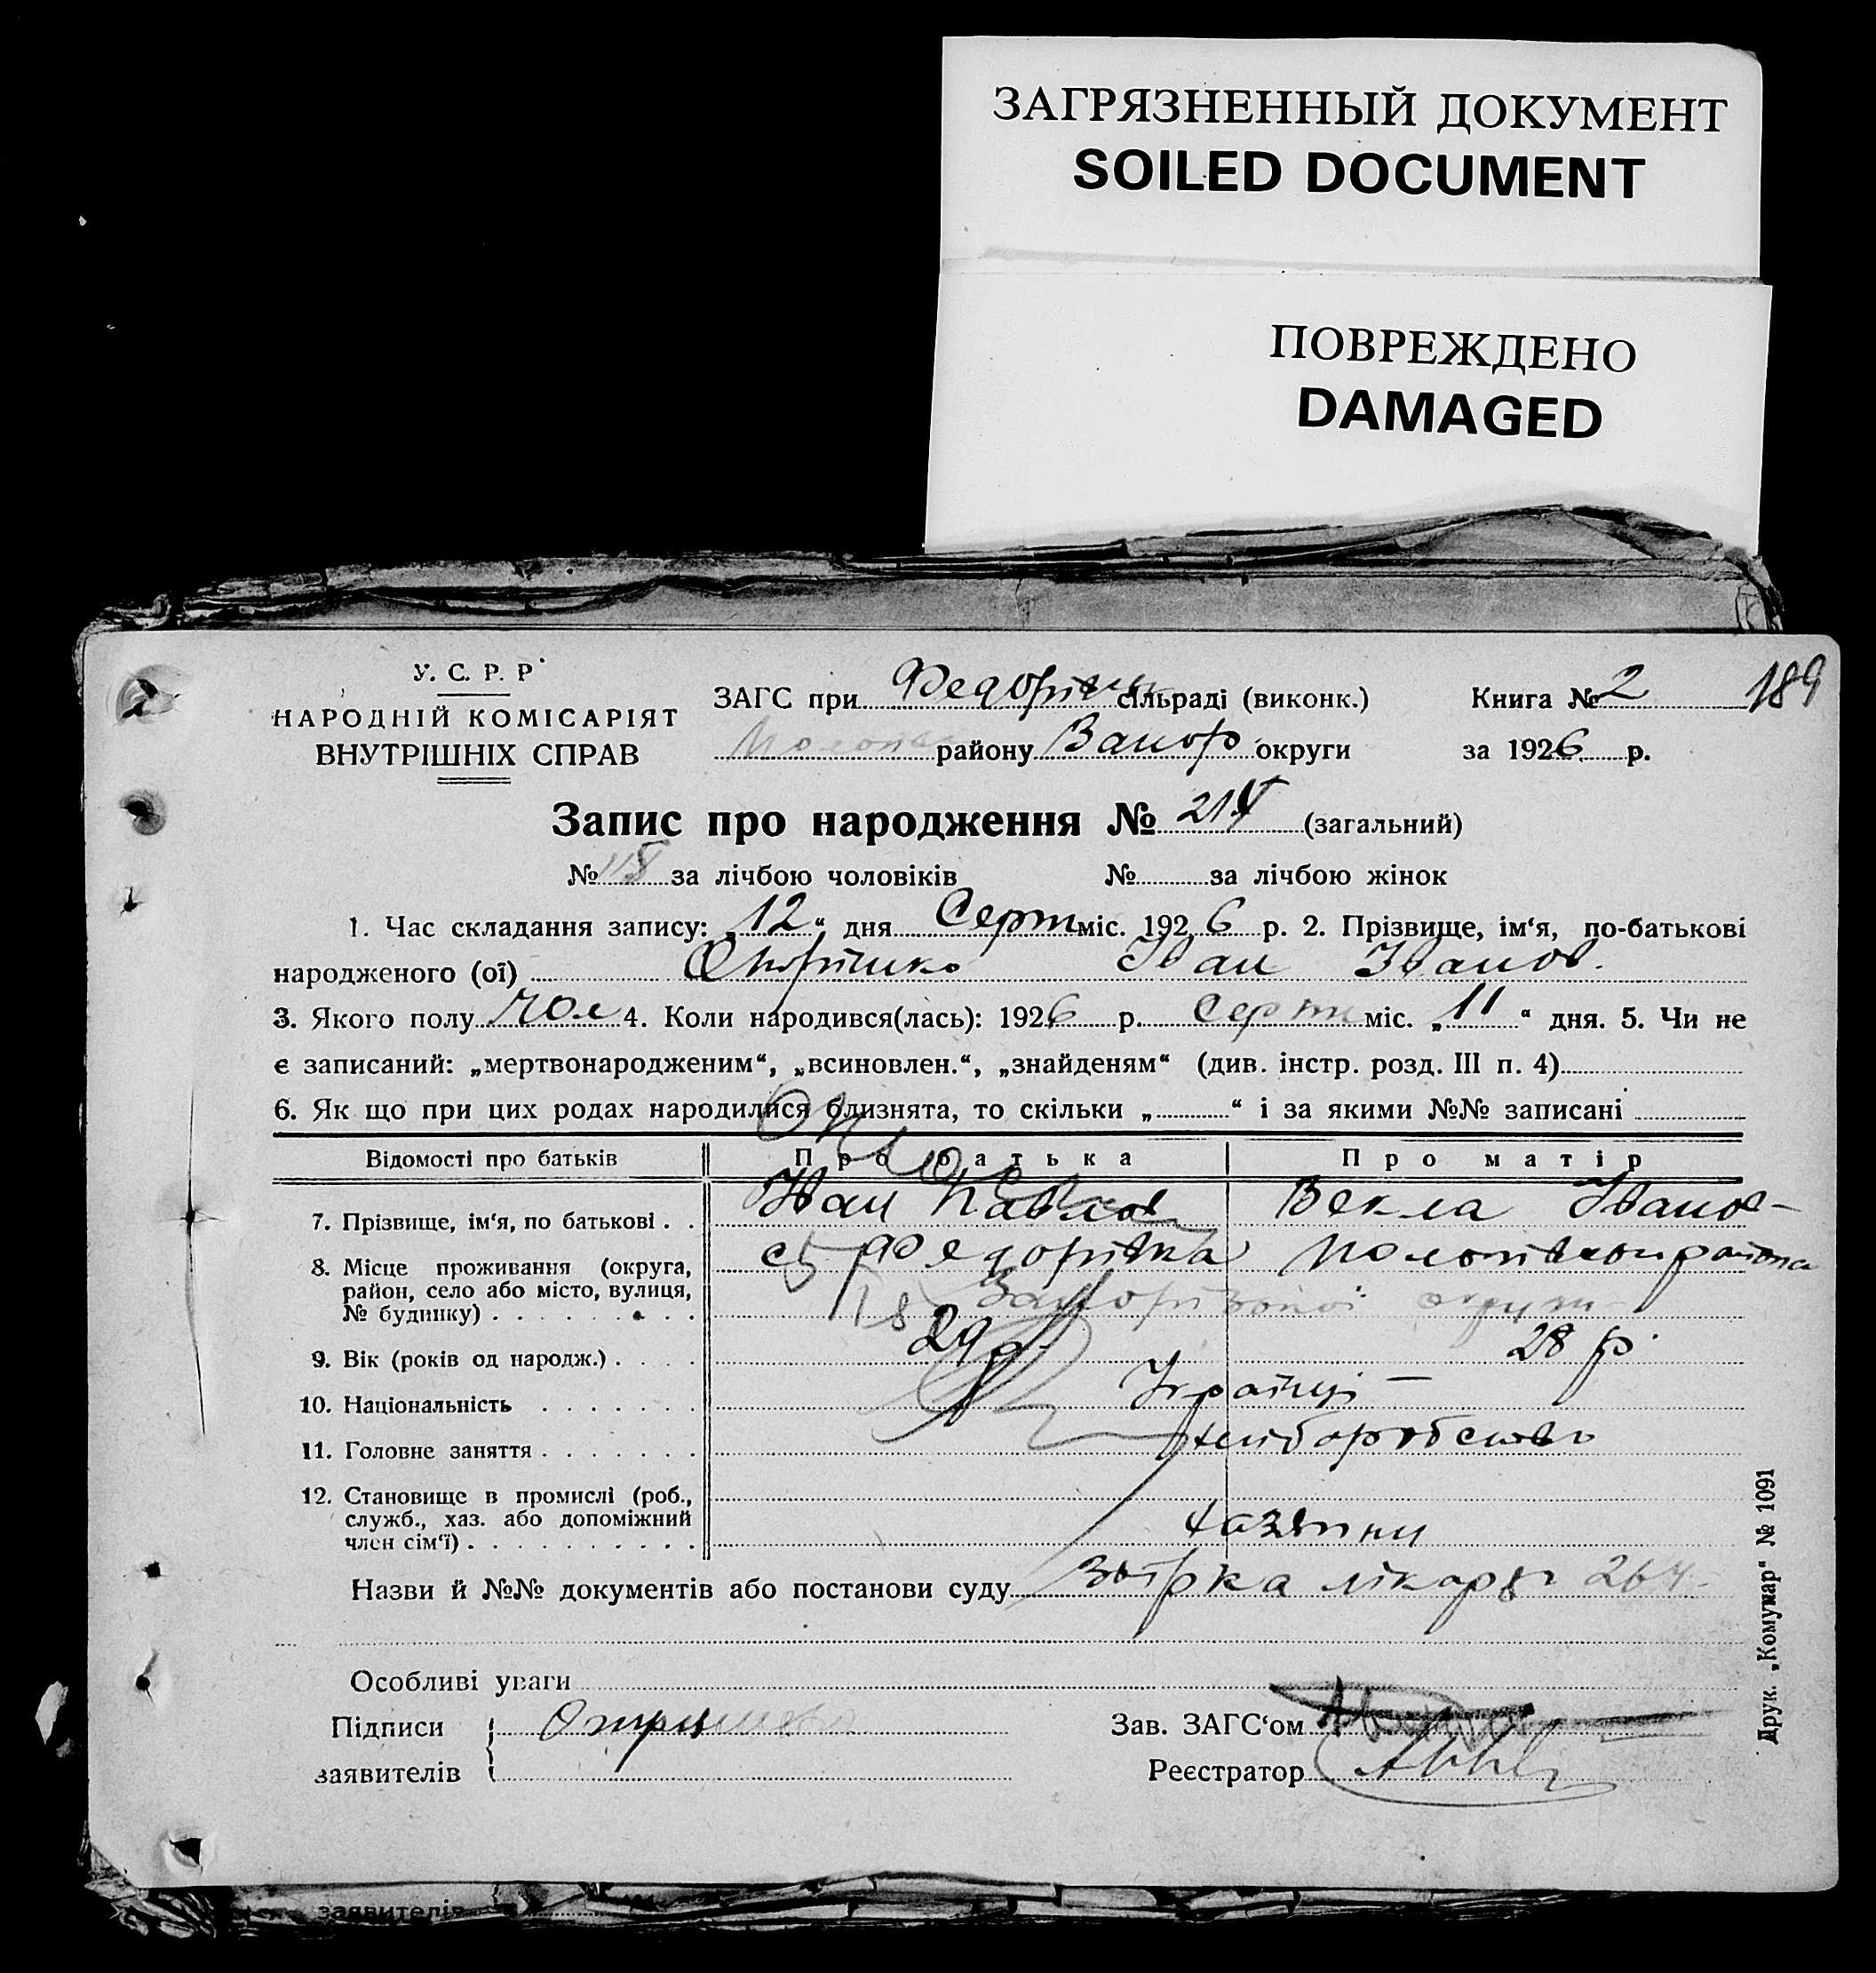 ЗАГРЯЗНЕННЫЙ ДОКУМЕНТ
SOILED DOCUMENT
ПОВРЕЖДЕНО
DAMAGED
У. С. Р. Р.
НАРОДНІЙ КОМІСАРІЯТ
ВНУТРІШНІХ СПРАВ
ЗАГС при Федорівск сільраді (виконк.) Книга № 2 189
району Запор. округи за 1926 р.
Запис про народження № (загальний)
№ за лічбою чоловіків № за лічбою жінок
1. Час складання запису: „12“ дня Серпн міс. 1926 р. 2. Прізвище, ім‘я, по-батькові
народженого (ої) Іван Іванов.
3. Якого полу чол 4. Коли народився(лась): 1926 р. Серпн міс. „11“ дня. 5. Чи не
є записаний: „мертвонародженим“, „всиновлен.“, „знайденям“ (див. інстр. розд. III п. 4)
6. Як що при цих родах народилися близнята, то скільки „ “ і за якими №№ записані
Відомості про батьків Про батька Про матір
7. Прізвище, ім‘я, по батькові . . Іван Павлов Векла Іванов-
8. Місце проживання (округа, с Федорівка района
район, село або місто, вулиця, Запорізької округи
№ будинку) . . . . . . . .
9. Вік (років од народж.) . . . . 29 р. 28 р.
10. Національність . . . . . . . Українці —
11. Головне заняття . . . . . . . хліборобство
12. Становище в промислі (роб.,
служб., хаз. або допоміжний
член сім‘ї) . . . . . . . . . . хазяїни
Назви й №№ документів або постанови суду лікаря 264.
Особливі уваги
Підписи Зав. ЗАГС‘ом
заявителів Реєстратор
Друк. „Комунар“ № 1091
заявителів